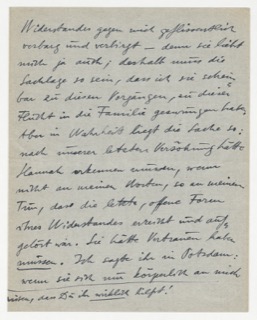 Widerstandes gegen mich geflissentlich
verbarg und verbirgt – denn sie liebt
mich ja auch, deshalb muss die
Sachlage so sein, dass ich sie schein-
bar zu diesen Vorgängen, zu dieser
Flucht in die Familie gezwungen habe.
Aber in Wahrheit liegt die Sache so:
nach unserer letzten Versöhnung hätte
Hannah erkennen müssen, wenn
nicht an meinen Worten, so an meinem
Tun, dass die letzte, offene Form
ihres Widerstandes erreicht und auf-
gelöst war. Sie hätte Vertrauen haben
müssen. Ich sagte ihr in Potsdam:
wenn sie sich nur körperlich an mich
dass Du ihr wirklich hilfst!